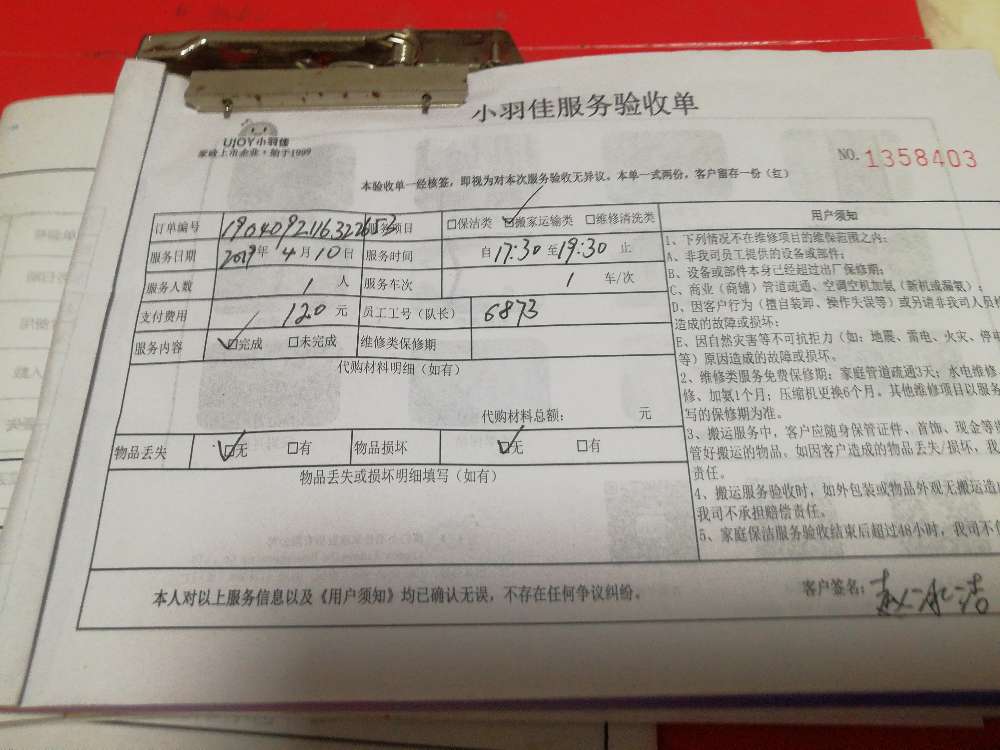 小羽佳服务验收单
UJOY小羽佳
家政上市企业·始于1999
NO. 1358403
本验收单一经核签，即视为对本次服务验收无异议。本单一式两份，客户留存一份（红）
订单编号 服务项目 □保洁类 ☑搬家运输类 □维修清洗类
服务日期 2019年 4月10日 服务时间 自17:30至19:30止
服务人数 1 人 服务车次 1 车/次
支付费用 120 元 员工工号（队长） 6873
服务内容 ☑完成 □未完成 维修类保修期
代购材料明细（如有）
代购材料总额： 元
物品丢失 ☑无 □有 物品损坏 ☑无 □有
物品丢失或损坏明细填写（如有）
用户须知
1、下列情况不在维修项目的维保范围之内：
A、非我司员工提供的设备或部件；
B、设备或部件本身已经超过出厂保修期；
C、商业（商铺）管道疏通、空调空机加氨（新机或漏氨）；
D、因客户行为（擅自装卸、操作失误等）或另请非我司人员
造成的故障或损坏；
E、因自然灾害等不可抗力（如：地震、雷电、火灾、停
等）原因造成的故障或损坏。
2、维修类服务免费保修期：家庭管道疏通3天；水电维修
修、加氨1个月；压缩机更换6个月。其他维修项目以服务
写的保修期为准。
3、搬运服务中，客户应随身保管证件、首饰、现金等
管好搬运的物品。如因客户造成的物品丢失/损坏，我
责任。
4、搬运服务验收时，如外包装或物品外观无搬运造
我司不承担赔偿责任。
5、家庭保洁服务验收结束后超过48小时，我司不
本人对以上服务信息以及《用户须知》均已确认无误，不存在任何争议纠纷。
客户签名：